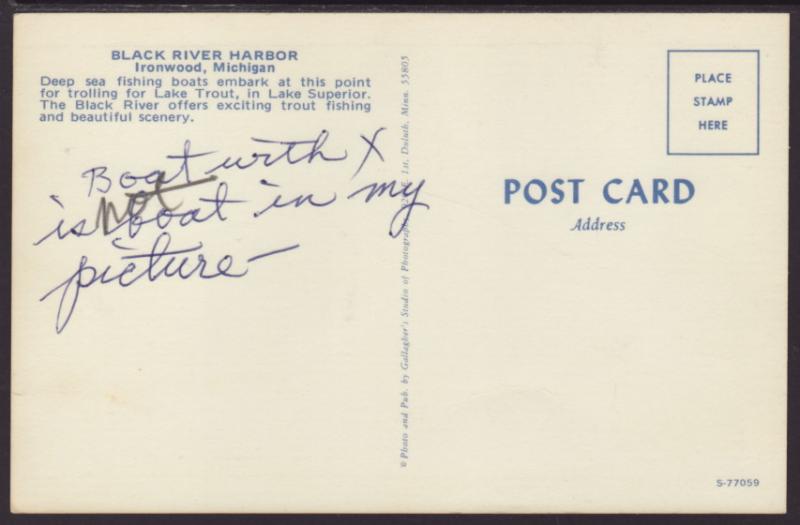 BLACK RIVER HARBOR
Ironwood, Michigan
Deep sea fishing boats embark at this point
for trolling for Lake Trout, in Lake Superior.
The Black River offers exciting trout fishing
and beautiful scenery.
Boat with X
is not boat in my
picture—
© Photo and Pub. by Gallagher's Studio of Photography, 1st, Duluth, Minn. 55805
PLACE
STAMP
HERE
POST CARD
Address
S-77059